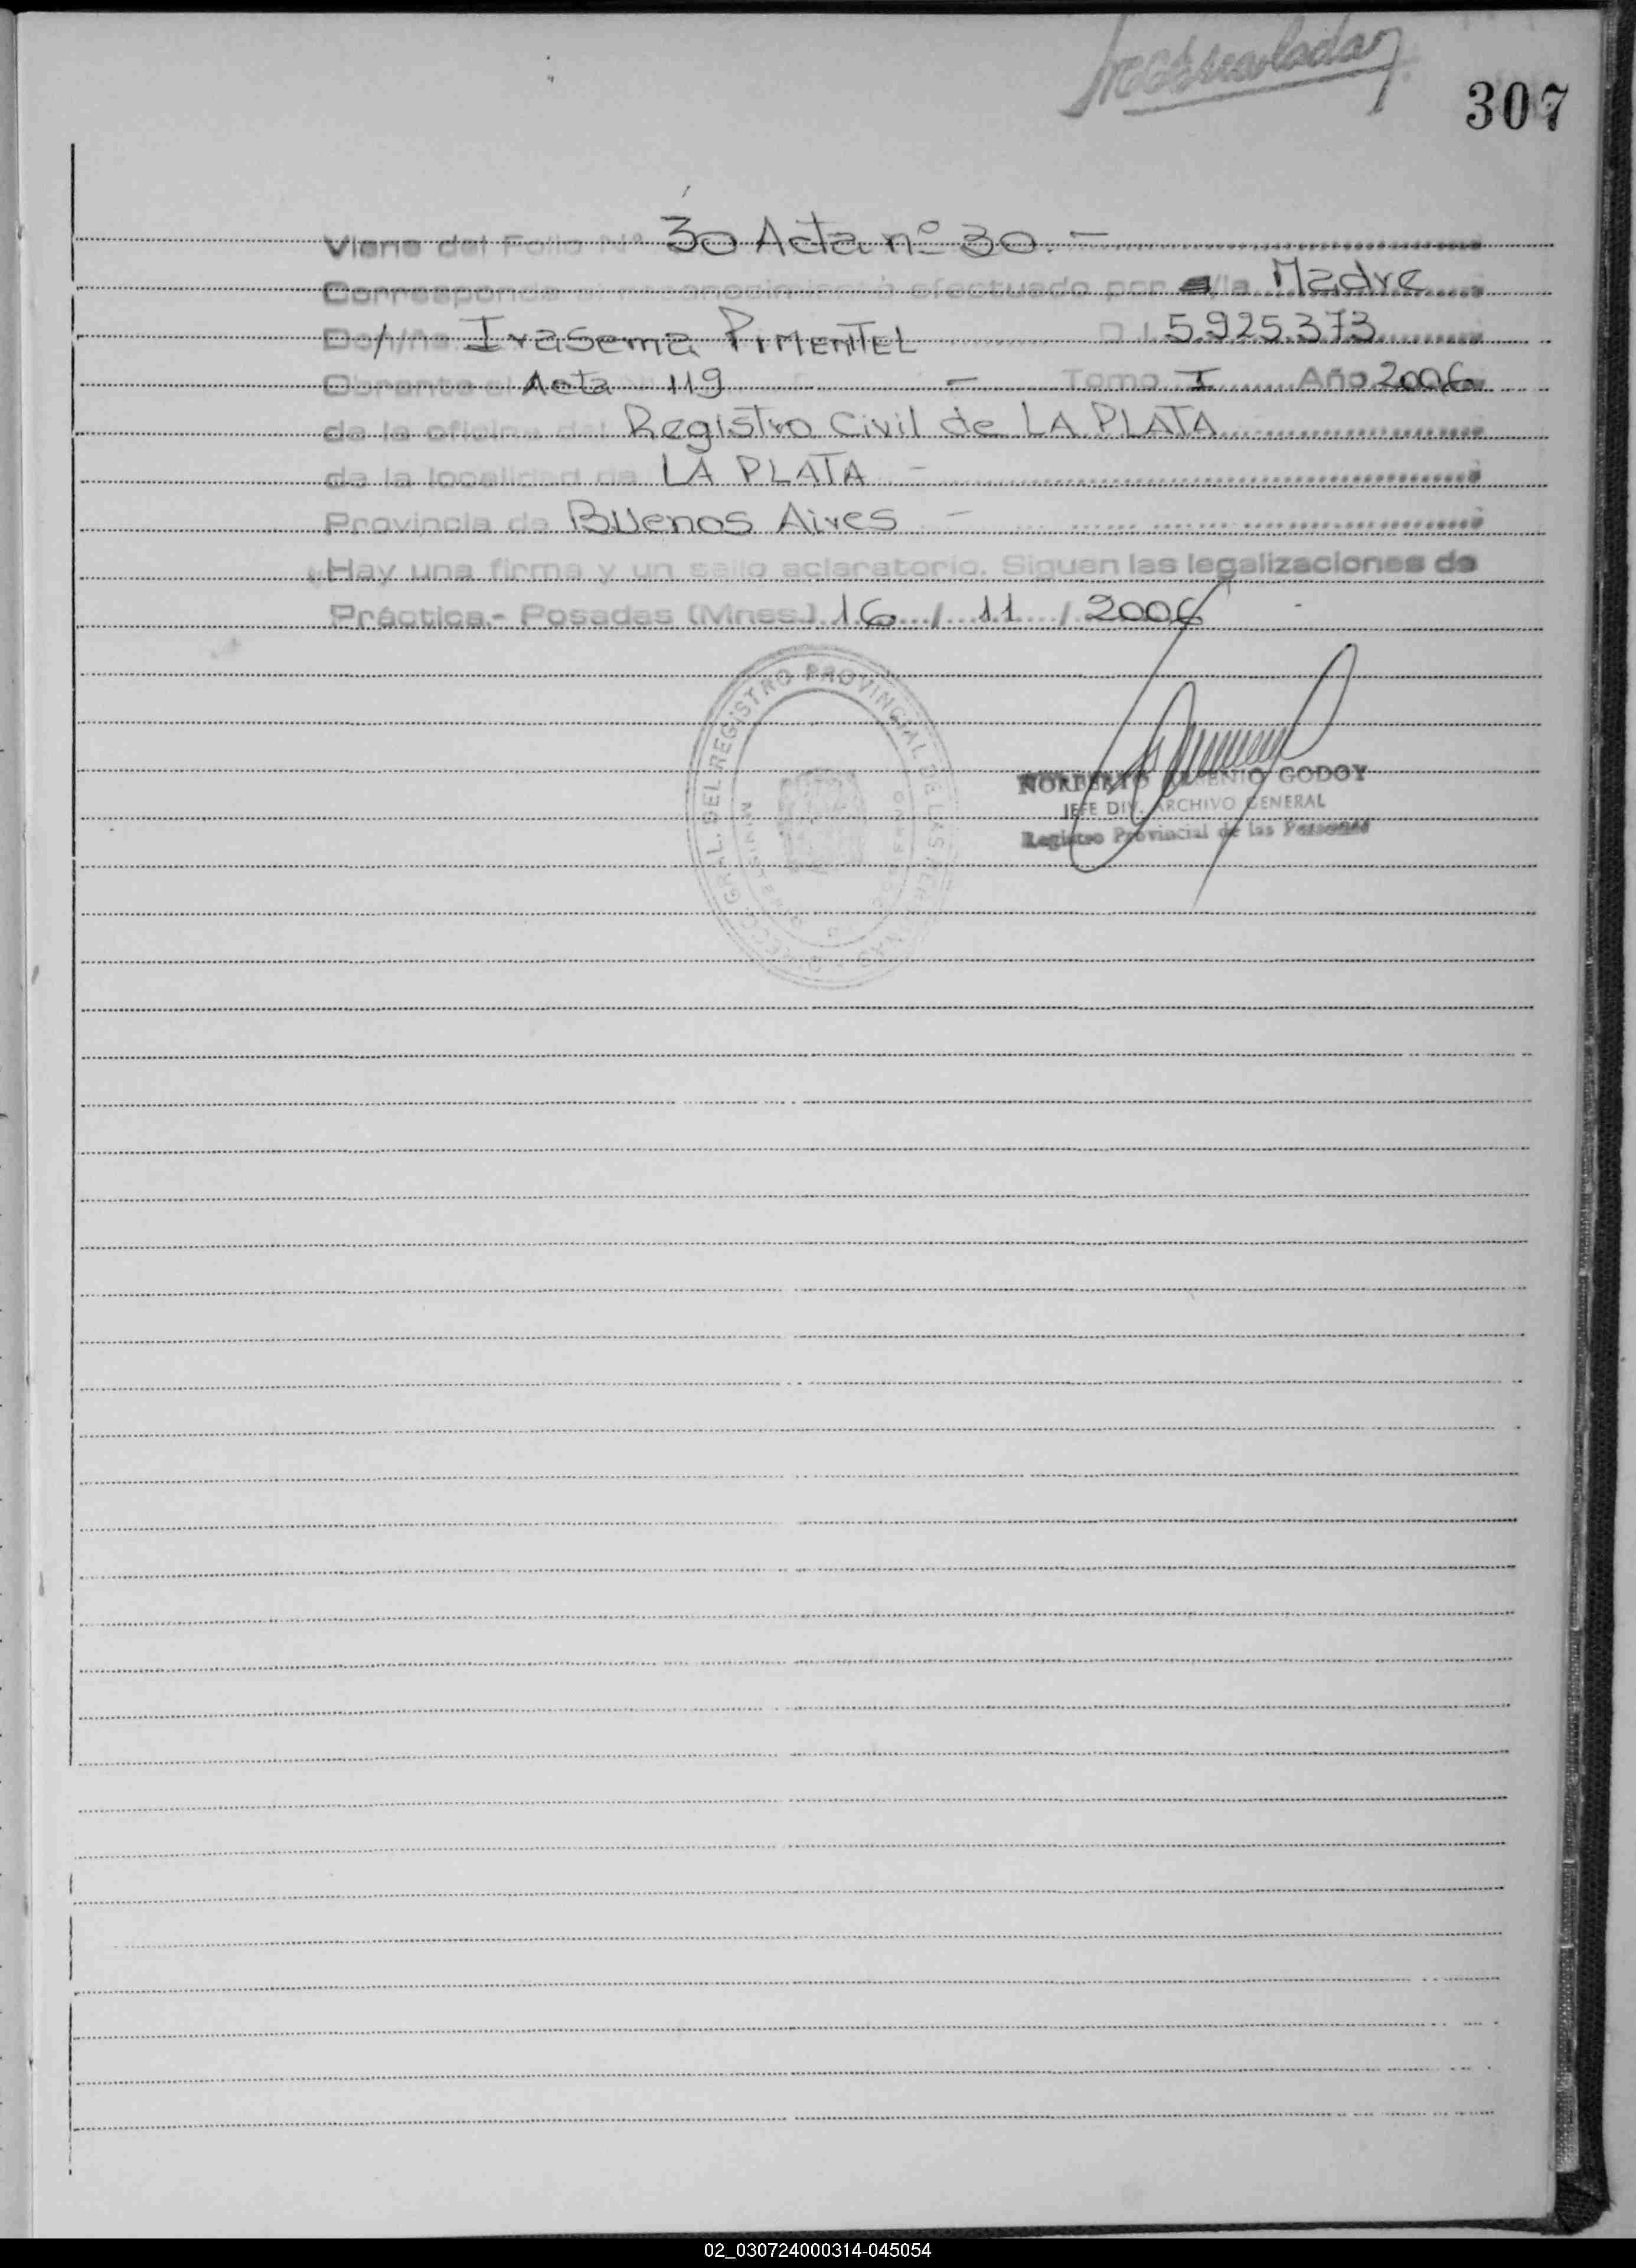 307
Viene del Folio Nº 30 Acta nº 30.-
Corresponde al reconocimiento efectuado por /la Madre
Don/ña Irasema PIMENTEL D.I. 5.925.373
Obrante al Acta 119 - Tomo I Año 2006
de la oficina del Registro Civil de LA PLATA
de la localidad de LA PLATA -
Provincia de Buenos Aires -
Hay una firma y un sello aclaratorio. Siguen las legalizaciones de
Práctica.- Posadas (Mnes.) 16 / 11 / 2006
DIRECC. GRAL. DEL REGISTRO PROVINCIAL DE LAS PERSONAS
NORBERTO GODOY
JEFE DIV. ARCHIVO GENERAL
Registro Provincial de las Personas
02_030724000314-045054